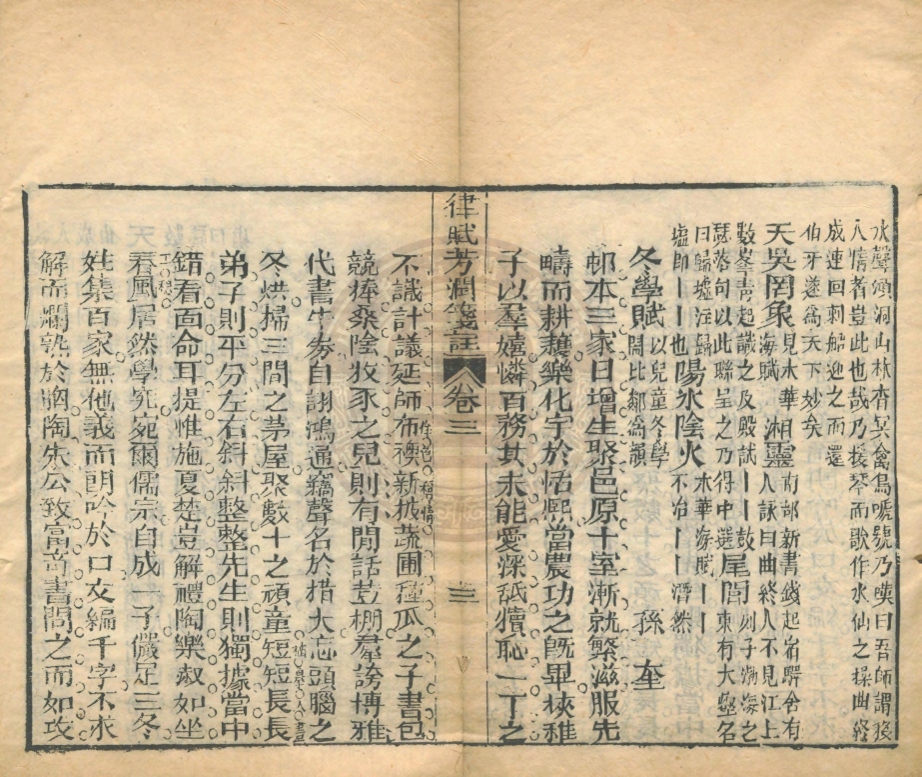 水聲澒洞山林杳冥禽鳥啼號乃嘆曰吾師謂移
人情者豈此也哉乃援琴而歌作水仙之操曲終
成連回刺船迎之而還
伯牙遂為天下妙矣
天吳罔象見木華海賦湘靈南部新書錢起宿驛舍有人詠曰曲終人不見江上
數峯青起識之及殿試丨丨鼓瑟落句以此聯呈之乃得中選尾閭列子渤海之東有大壑名
曰歸墟注歸墟即丨丨也陽氷陰火木華海賦丨丨不冶丨丨潛然
冬學賦以兒童冬學鬧比鄰為韻 孫奎
邨本三家日增生聚邑原十室漸就繁滋服先
疇而耕穫樂化宇於恬熙當農功之既畢挾稚
子以羣嬉憐百務其未能愛深舐犢恥一丁之
律賦芳潤箋註 卷三 三
不識計議延師布襖新披蔬圃種瓜之子書包
競捧桑陰牧豕之兒則有閒話荳棚羣誇博雅
代書牛券自詡鴻通竊聲名於措大忘頭腦之
冬烘掃三間之茅屋聚數十之頑童短短長長
弟子則平分左右斜斜整整先生則獨據當中
錯看面命耳提惟施夏楚豈解禮陶樂淑如坐
春風居然學究宛爾儒宗自成一子儼足三冬
姓集百家無他義而朗吟於口文編千字不求
解而爛熟於胸陶朱公致富奇書問之而如攻